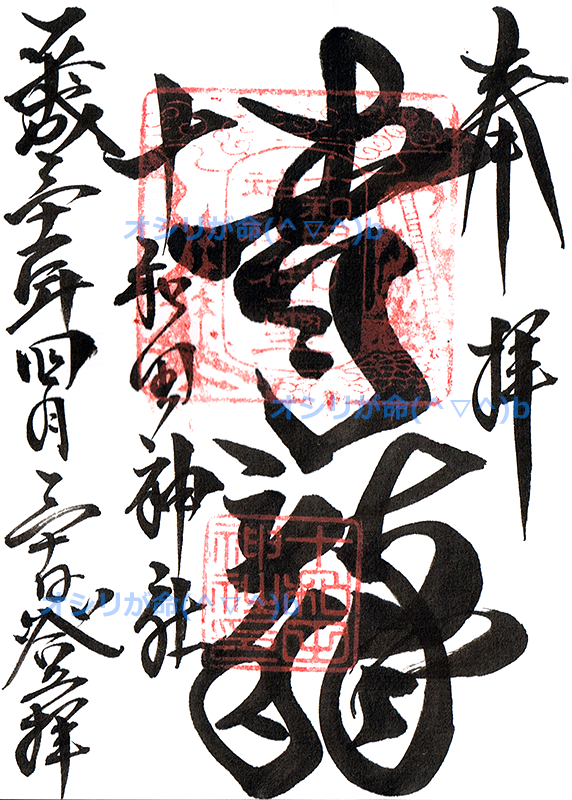 奉拝
青龍
十和田神社
平成三十一年四月三十日登拝
十和田
オシリが命(^▽^)b
オシリが命(^▽^)b
オシリが命(^▽^)b